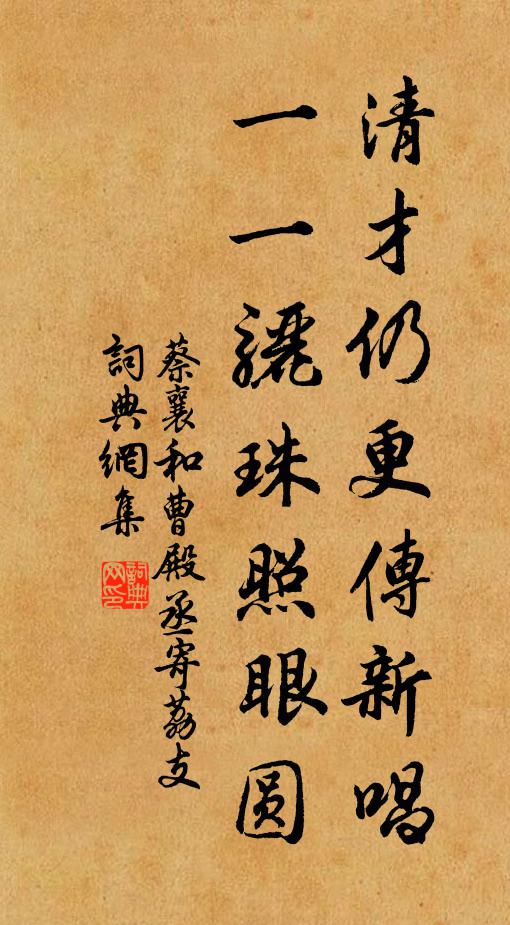 清才仍更傳新唱
一一驪珠照眼圓
蔡襄和曹殿丞寄荔支
詞典網集
詞典网印